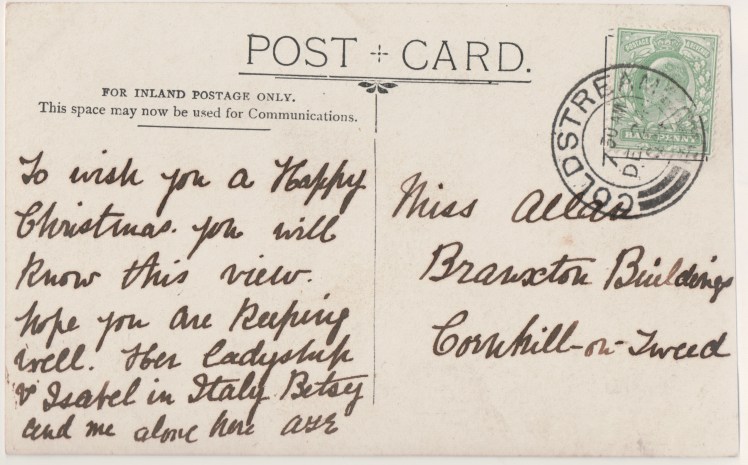 POST CARD.
FOR INLAND POSTAGE ONLY.
This space may now be used for Communications.
To wish you a Happy
Christmas. you will
know this view.
hope you are keeping
well. Her ladyship
& Isabel in Italy Betsy
and me alone here
Miss Allan
Branxton Buildings
Cornhill-on-Tweed
COLDSTREAM
7 30 AM
DE
POSTAGE